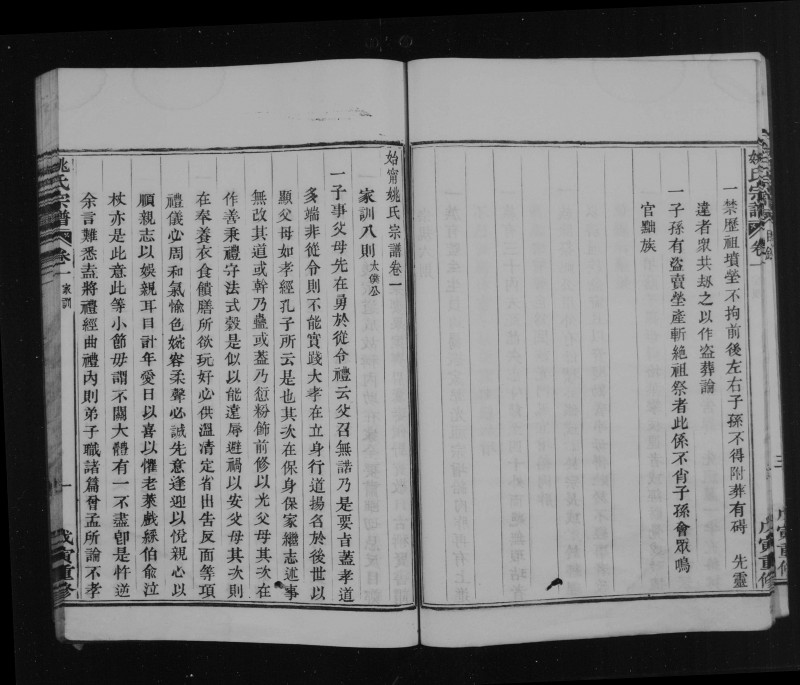 一禁歷祖墳塋不拘前後左右子孫不得附葬有碍 先靈
違者衆共劾之以作盜葬論
一子孫有盜賣塋產斬絕祖祭者此係不肖子孫會眾鳴
官黜族
姚氏宗譜 卷一
三
戊寅重修
始甯姚氏宗譜卷一
家訓八則 太僕公
一子事父母先在勇於從令禮云父召無諾乃是要旨蓋孝道
多端非從令則不能實踐大孝在立身行道揚名於後世以
顯父母如孝經孔子所云是也其次在保身保家繼志述事
無改其道或幹乃蠱或蓋乃愆粉飾前修以光父母其次在
作善秉禮守法式穀是似以能遠辱避禍以安父母其次則
在奉養衣食饋膳所欲玩好必供溫凊定省出告反面等項
禮儀必周和氣愉色婉容柔聲必誠先意逢迎以悅親心以
順親志以娛親耳目計年愛日以喜以懼老萊戲綵伯俞泣
杖亦是此意此等小節毋謂不關大體有一不盡卽是忤逆
余言難悉盍將禮經曲禮內則弟子職諸篇曾孟所論不孝
姚氏宗譜 卷一 家訓
一
戊寅重修